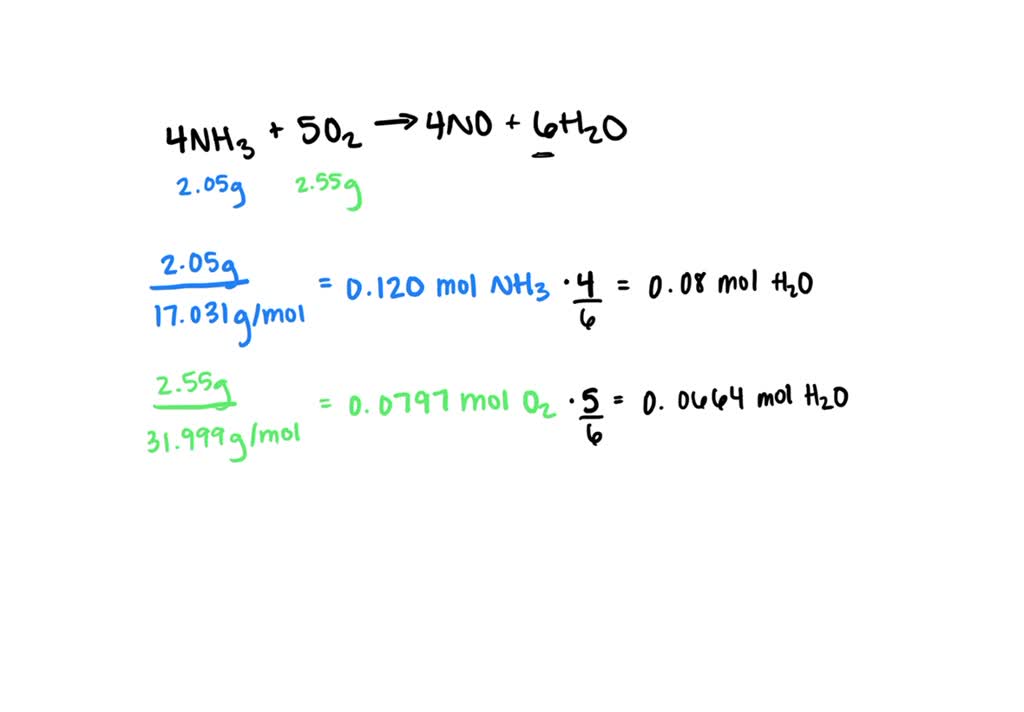 4NH₃ + 5O₂ → 4NO + 6H₂O
2.05g 2.55g
2.05g
17.031g/mol = 0.120 mol NH₃ · 4/6 = 0.08 mol H₂O
2.55g
31.999g/mol = 0.0797 mol O₂ · 5/6 = 0.0664 mol H₂O